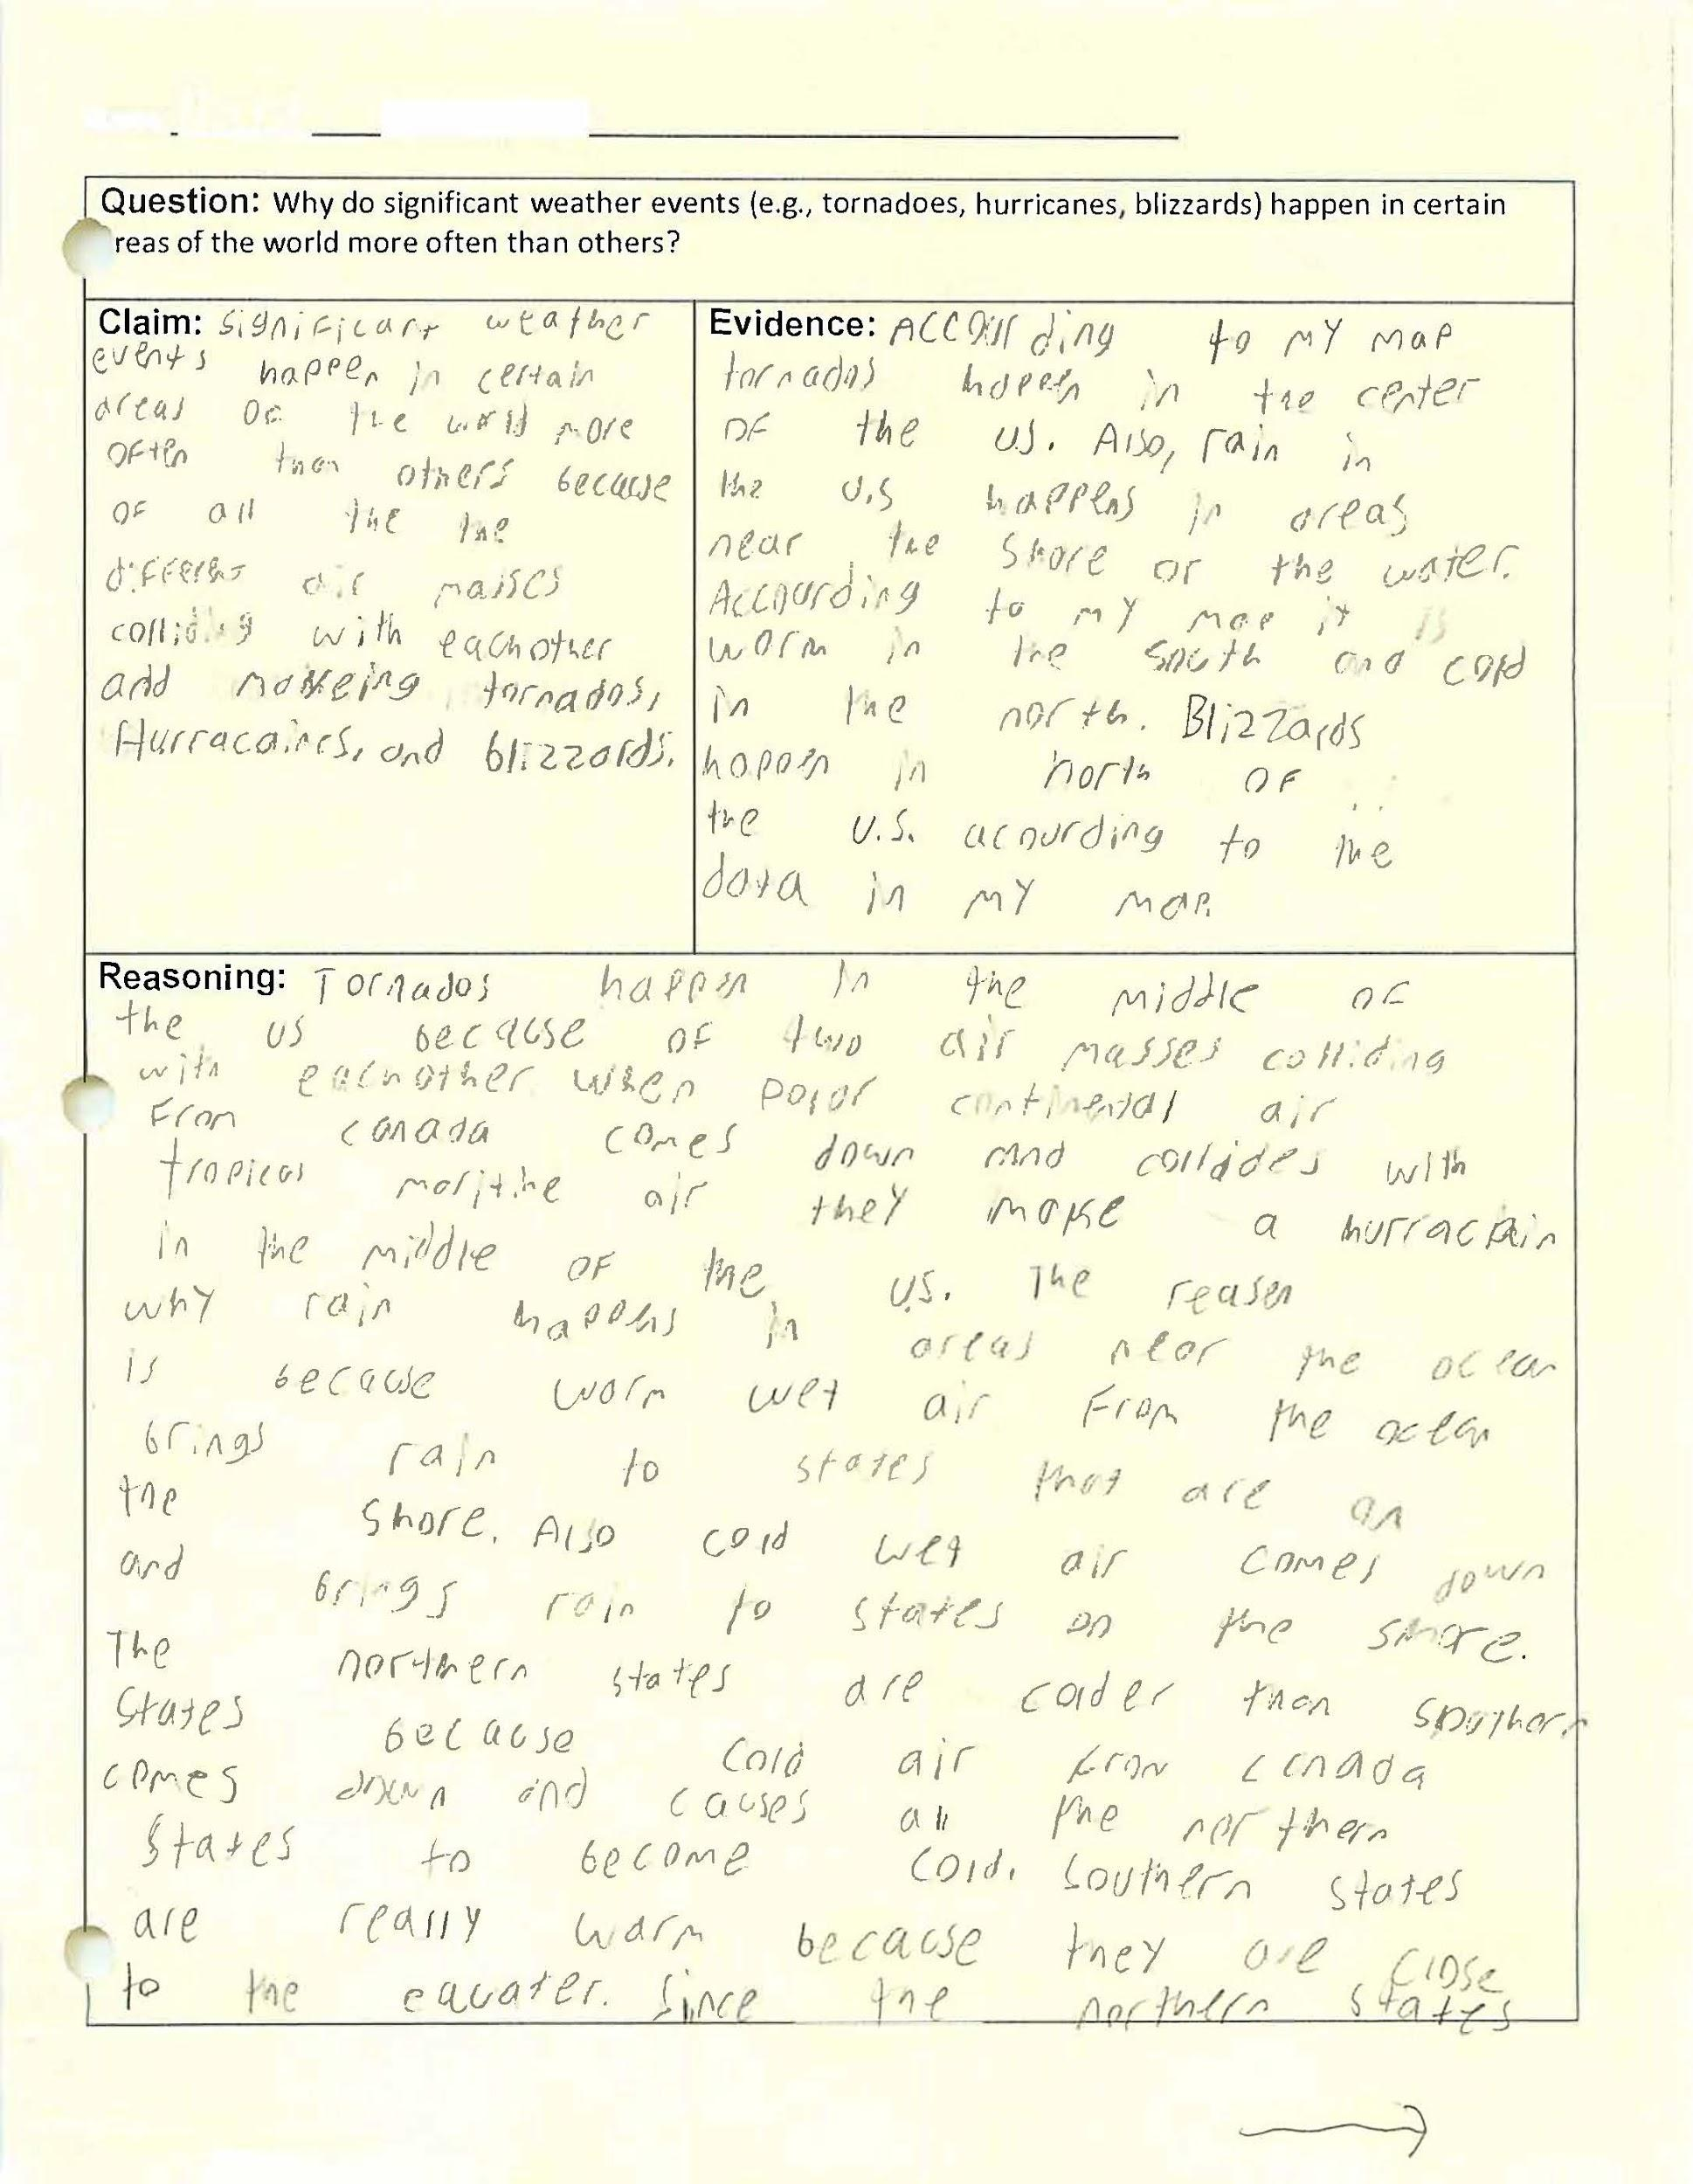 Question: Why do significant weather events (e.g., tornadoes, hurricanes, blizzards) happen in certain
reas of the world more often than others?
Claim: significant weather
events happen in certain
areas of the world more
often than others because
of all the the
different air masses
colliding with eachother
and makeing tornados,
Hurracaines, and blizzards.
Evidence: Accourding to my map
tornados happen in the center
of the U.S. Also, rain in
the U.S happens in areas
near the shore or the water.
Accourding to my map it is
worm in the south and cold
in the north. Blizzards
happen in north of
the U.S. acourding to the
data in my map.
Reasoning: Tornados happen in the middle of
the US because of two air masses colliding
with eachother. when polar continental air
From canada comes down and collides with
tropical maritime air they make a hurracain
in the middle of the U.S. The reason
why rain happens in areas near the ocean
is because worm wet air From the ocean
brings rain to states that are on
the shore. Also cold wet air comes down
and brings rain to states on the shore.
The northern states are colder than southern
states because cold air from canada
comes down and causes all the northern
states to become cold. Southern states
are really warm because they are close
to the equater. Since the northern states